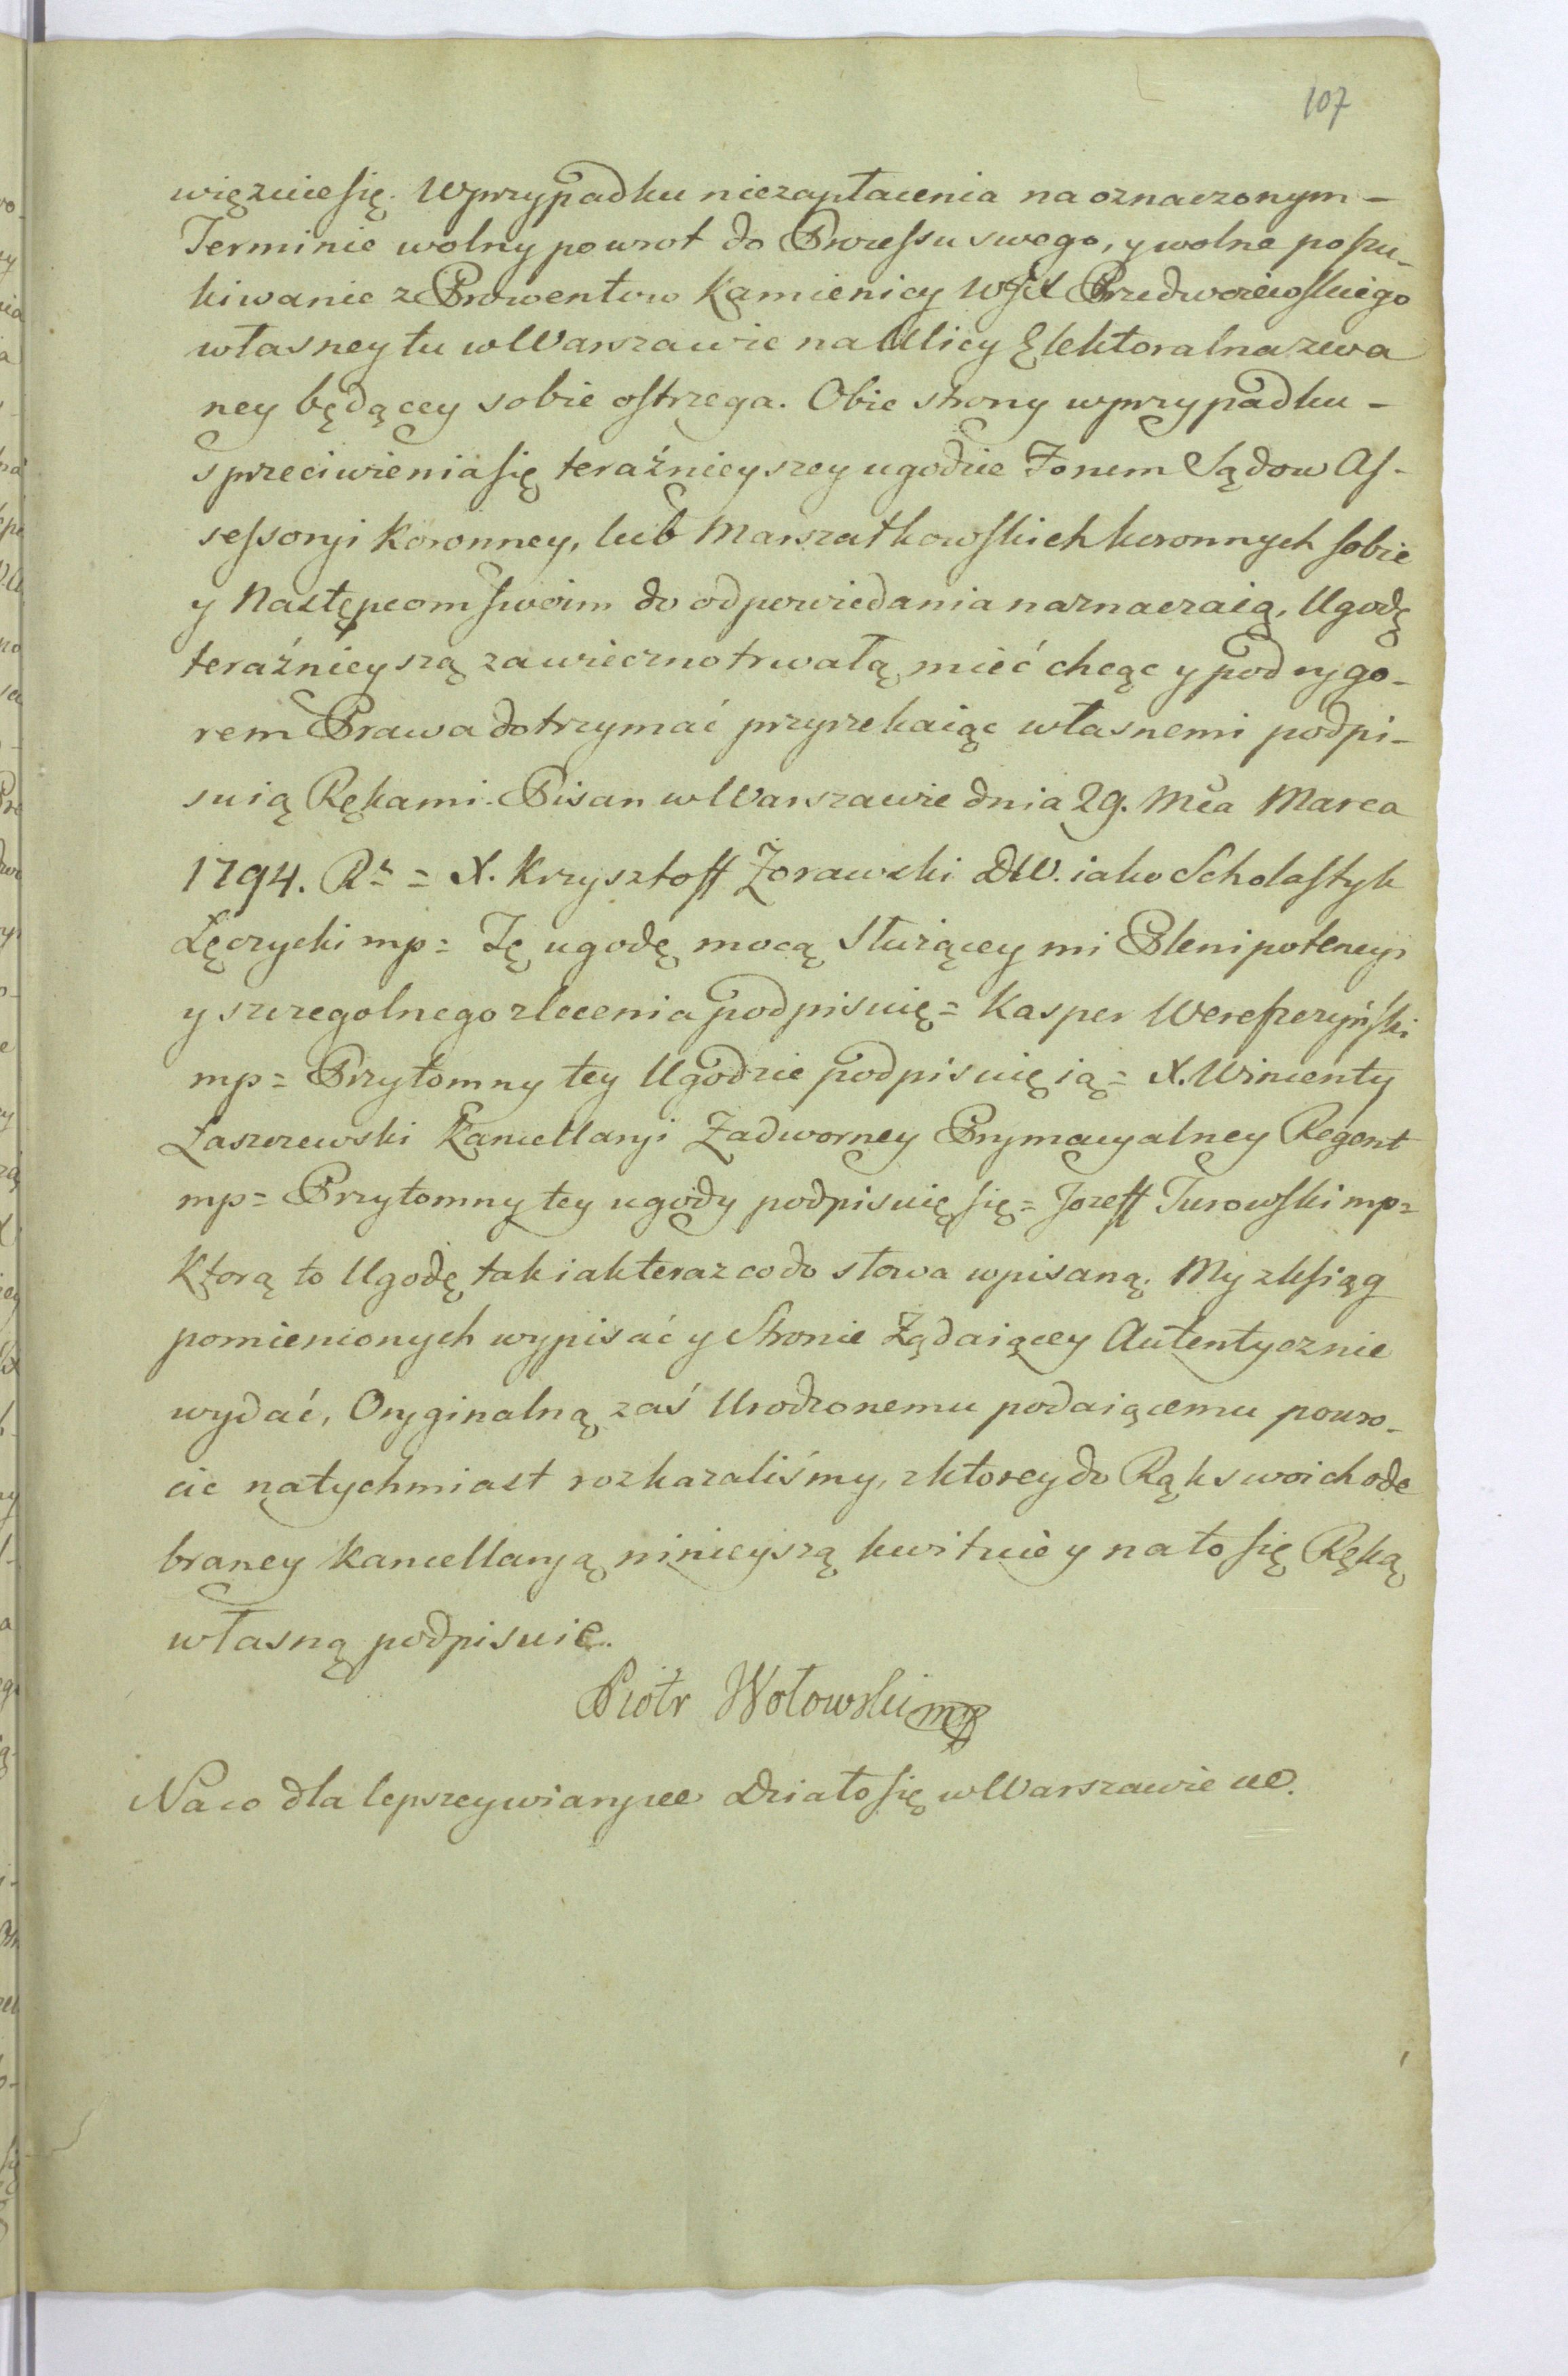 107
więzuie się. W przypadku niezapłacenia na oznaczonym –
Terminie wolny powrot do Processu swego, y wolne poszu-
kiwanie z Prowentow Kamienicy WJX Przedworzewskiego
własney tu w Warszawie na Ulicy Elektoralna zewa
ney będącey sobie ostrzega. Obie strony w przypadku –
sprzeciwienia się teraźnieyszey ugodzie Forum Sądow As-
sessoryi Koronney, lub Marszałkowskich koronnych sobie
y Następcom swoim do odpowiedania naznaczaią, Ugodę
teraźnieyszą za wieczno trwałą mieć chcąc y pod rygo-
rem Prawa dotrzymać przyrzekaiąc własnemi podpi-
suią Rękami. Pisan w Warszawie dnia 29. Mca Marca
1794. Rº = X. Krzysztoff Żorawski DW. iako Scholastyk
Łęczycki mp = Tę ugodę mocą służącey mi Plenipotencyi
y szczegolnego zlecenia podpisuię = Kasper Wereszczyński
mp = Przytomny tey Ugodzie podpisuię ią = X. Wincenty
Łaszczewski Kancellaryi Zadworney Prymacyalney Regent
mp = Przytomny tey ugody podpisuię się = Jozeff Turowski mp =
Ktorą to Ugodę tak iak teraz co do słowa wpisaną. My z ksiąg
pomienionych wypisać y Stronie Żądaiącey Autentycznie
wydać, Oryginalną zaś Urodzonemu podaiącemu powro-
cic natychmiast rozkazaliśmy, z ktorey do Rąk swoich ode
braney Kancellaryą ninieyszą kwituie y na to się Ręką
własną podpisuie.
Piotr Wołowski mp
Na co dla lepszey wiary ee Działo się w Warszawie ee.